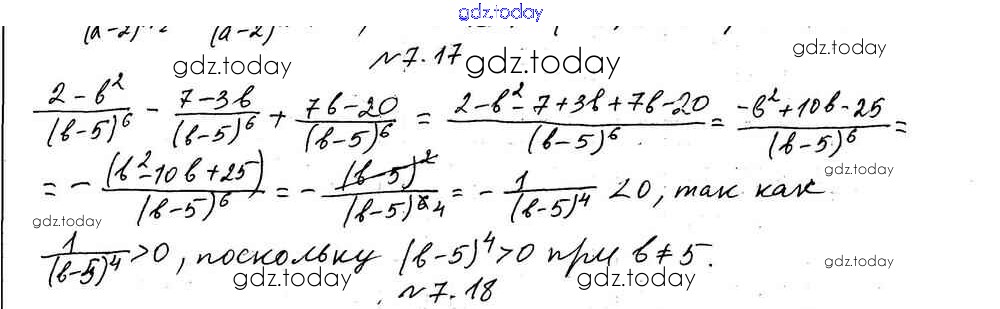 gdz.today
(a-2)   (a-2)
№7.17
gdz.today gdz.today
\frac{2-b^2}{(b-5)^6} - \frac{7-3b}{(b-5)^6} + \frac{7b-20}{(b-5)^6} = \frac{2-b^2-7+3b+7b-20}{(b-5)^6} = \frac{-b^2+10b-25}{(b-5)^6} =
gdz.today gdz.today gdz.today
= - \frac{(b^2-10b+25)}{(b-5)^6} = - \frac{(b-5)^2}{(b-5)^{6 4}} = - \frac{1}{(b-5)^4} < 0, так как
gdz.today
\frac{1}{(b-5)^4} > 0, поскольку (b-5)^4 > 0 при b ≠ 5.
gdz.today gdz.today gdz.today
№7.18